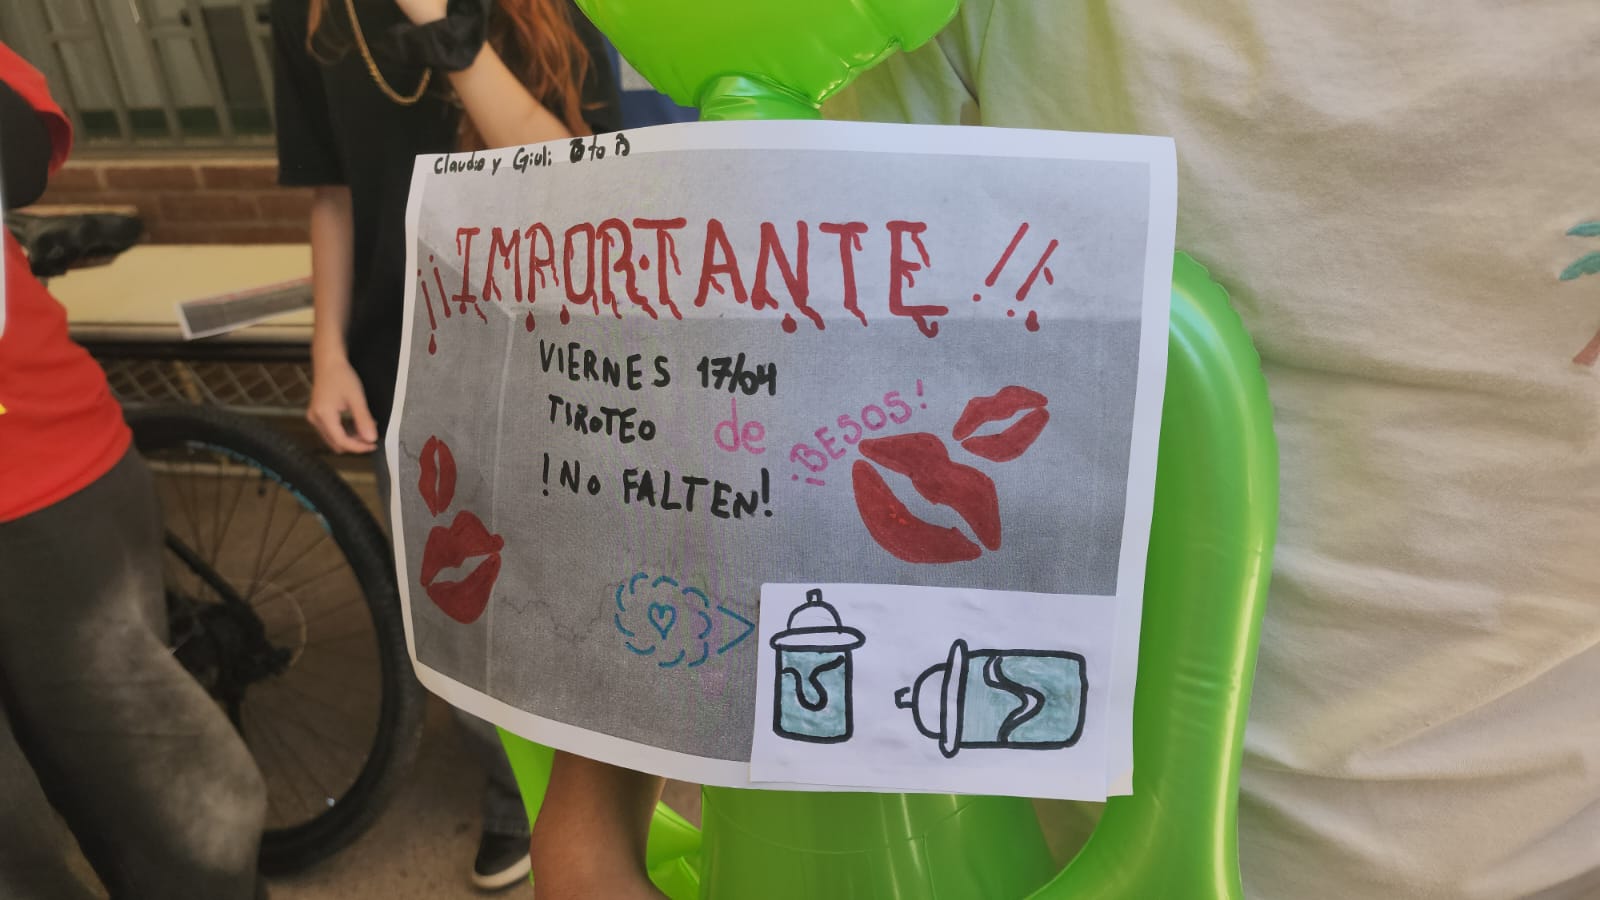 Claudio y Giuli 6to B
¡¡IMPORTANTE!!
VIERNES 17/04
TIROTEO de ¡BESOS!
!NO FALTEN!